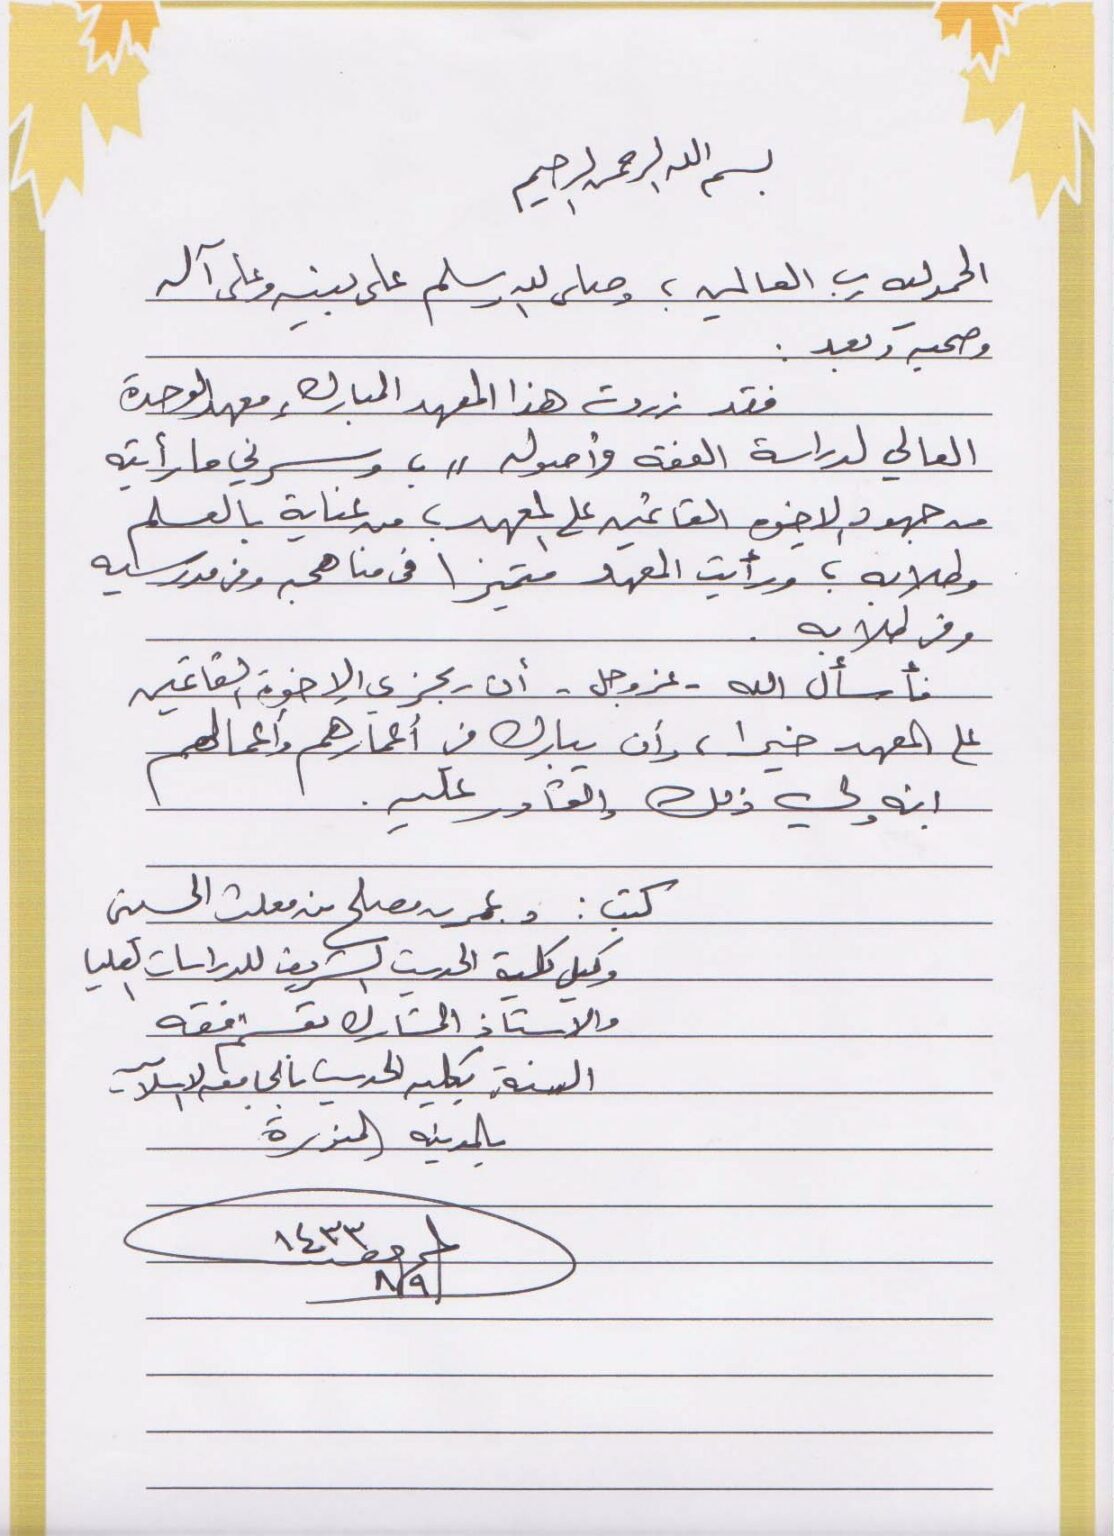 بسم الله الرحمن الرحيم
الحمد لله رب العالمين ، وصلى الله وسلم على نبيه وعلى آله
وصحبه وبعد :
فقد زرت هذا المعهد المبارك ، معهد الوحدة
العالي لدراسة الفقه وأصوله " ، وسرني ما رأيته
من جهود الإخوة القائمين على المعهد ، من عناية بالعلم
وطلابه ، ورأيت المعهد متميزا في مناهجه وفي مدرسيه
وفي طلابه .
فأسأل الله - عز وجل - أن يجزي الإخوة القائمين
على المعهد خيرا ، وأن يبارك في أعمارهم وأعمالهم
إنه ولي ذلك والقادر عليه .
كتبه : د عمر بن مصلح الحسيني
وكيل كلية الحديث الشريف للدراسات العليا
والأستاذ المشارك بقسم فقه
السنة بكلية الحديث بالجامعة الإسلامية
بالمدينة المنورة
١٤٣٣
٨/٩